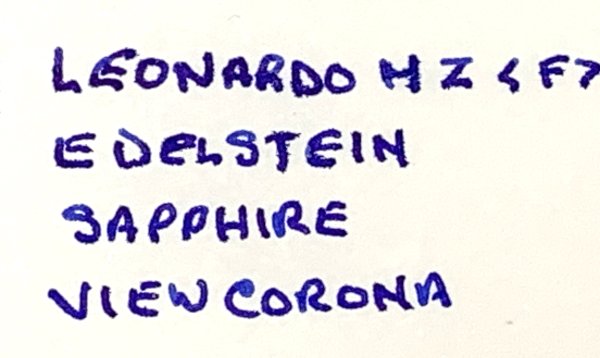 LEONARDO MZ <F>
EDELSTEIN
SAPPHIRE
VIEW CORONA